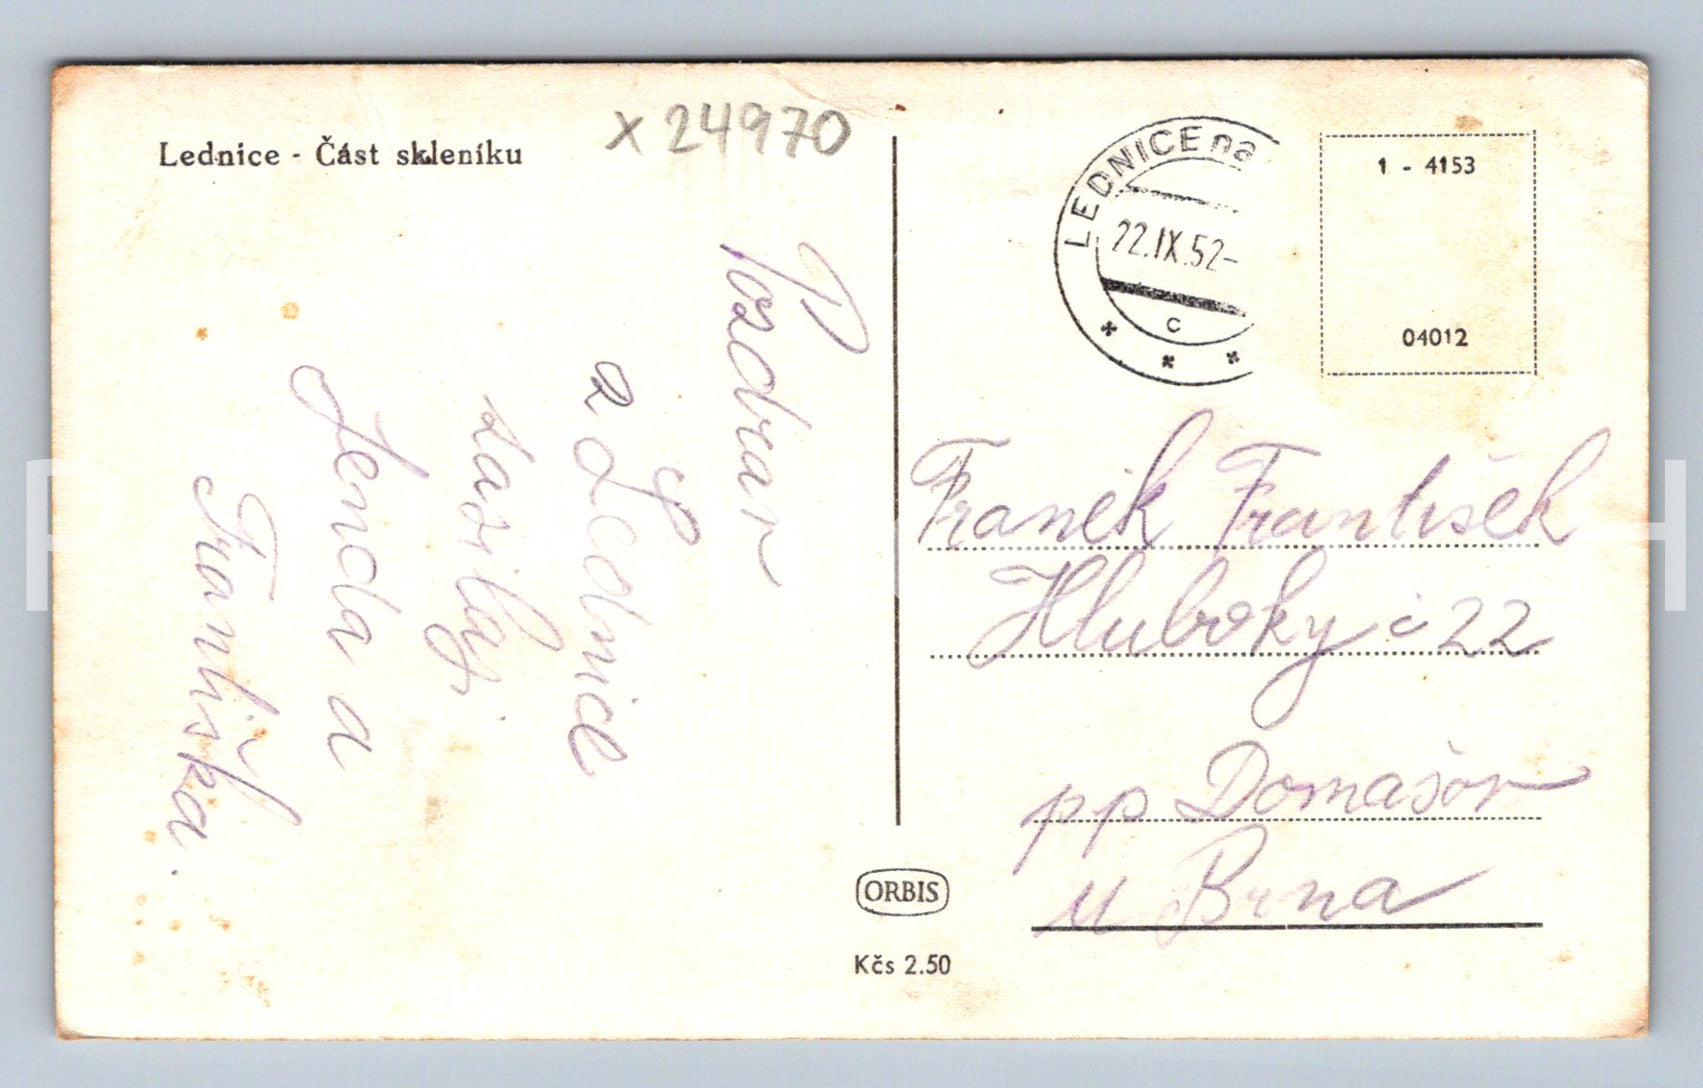 Lednice - Část skleníku
x 24970
LEDNICE na
22.IX.52-
c
1 - 4153
04012
Pozdrav
z Lednice
zasilaji
Jenda a
Františka.
Franěk František
Hluboky č 22
pp Domašov
u Brna
ORBIS
Kčs 2.50